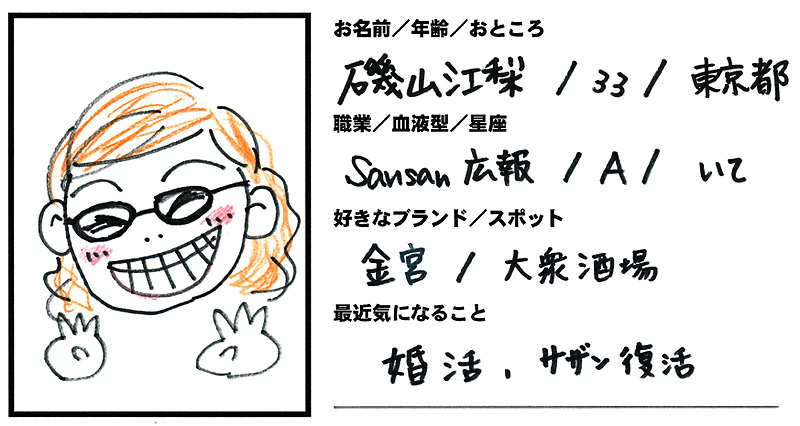 お名前／年齢／おところ
磯山江梨 / 33 / 東京都
職業／血液型／星座
Sansan 広報 / A / いて
好きなブランド／スポット
金宮 / 大衆酒場
最近気になること
婚活、サザン復活